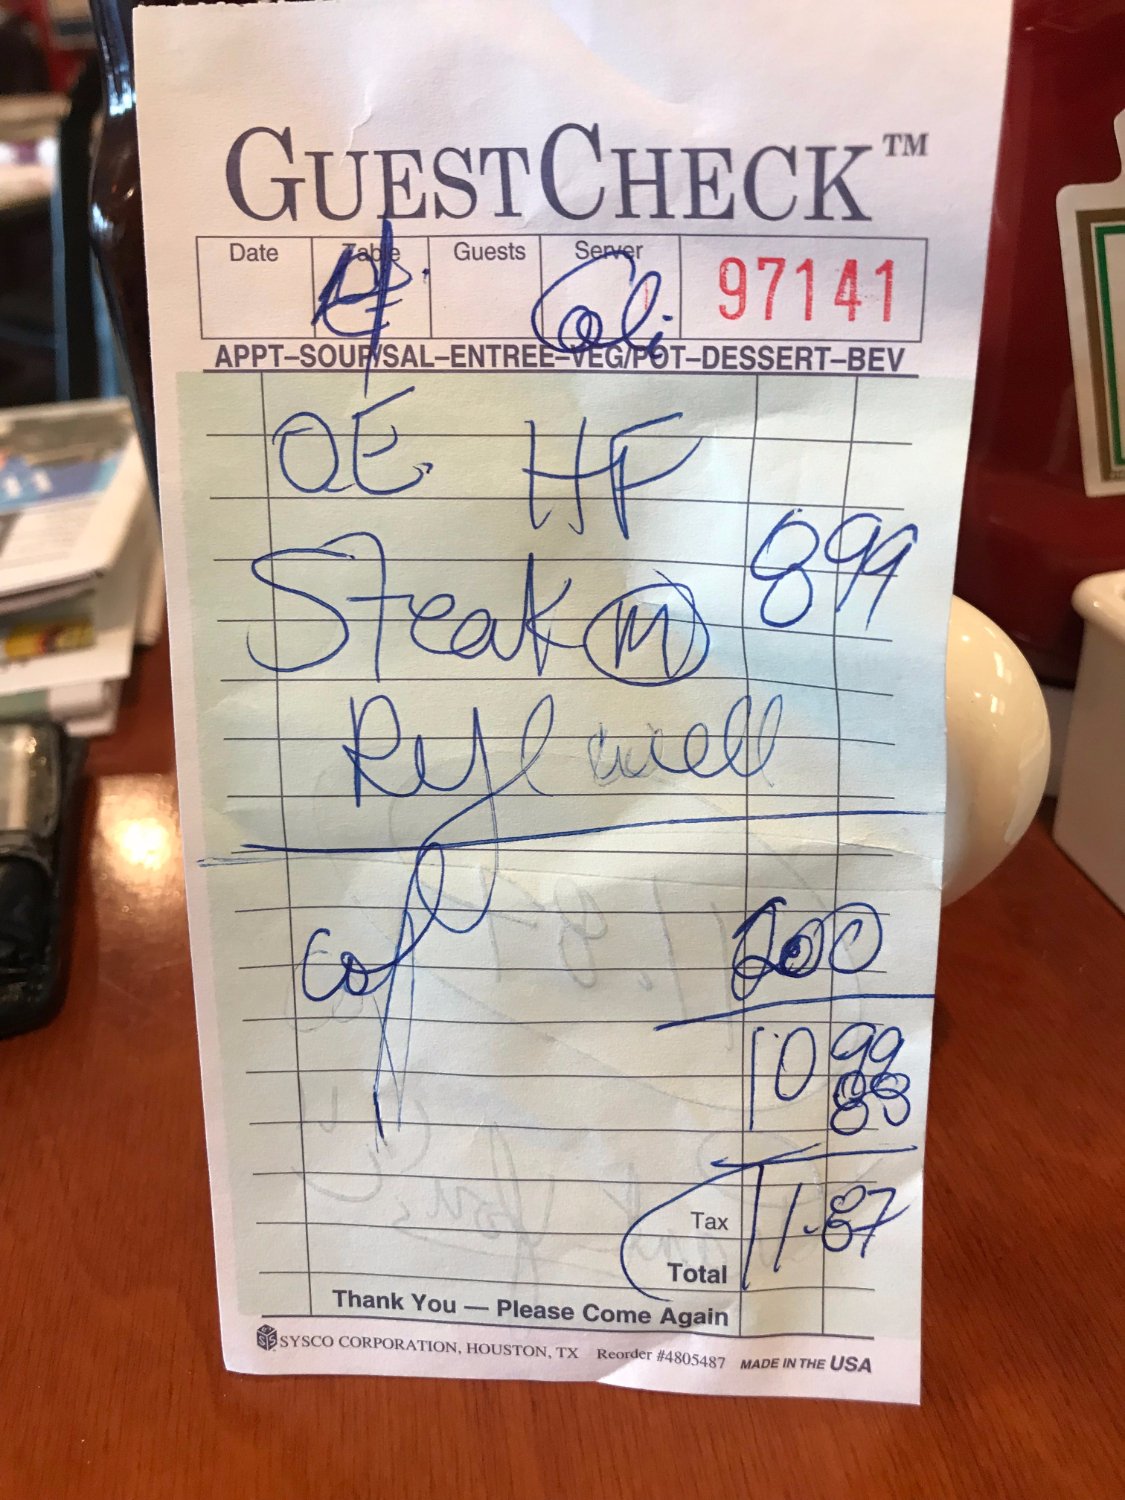 GUESTCHECK™
Date Table Guests Server 97141
Cali
APPT–SOUP/SAL–ENTREE–VEG/POT–DESSERT–BEV
OE HF
Steak M 8 99
Ryl well
Cof 200
10 99
88
11.87
Tax
Total
Thank You — Please Come Again
SYSCO CORPORATION, HOUSTON, TX Reorder #4805487 MADE IN THE USA